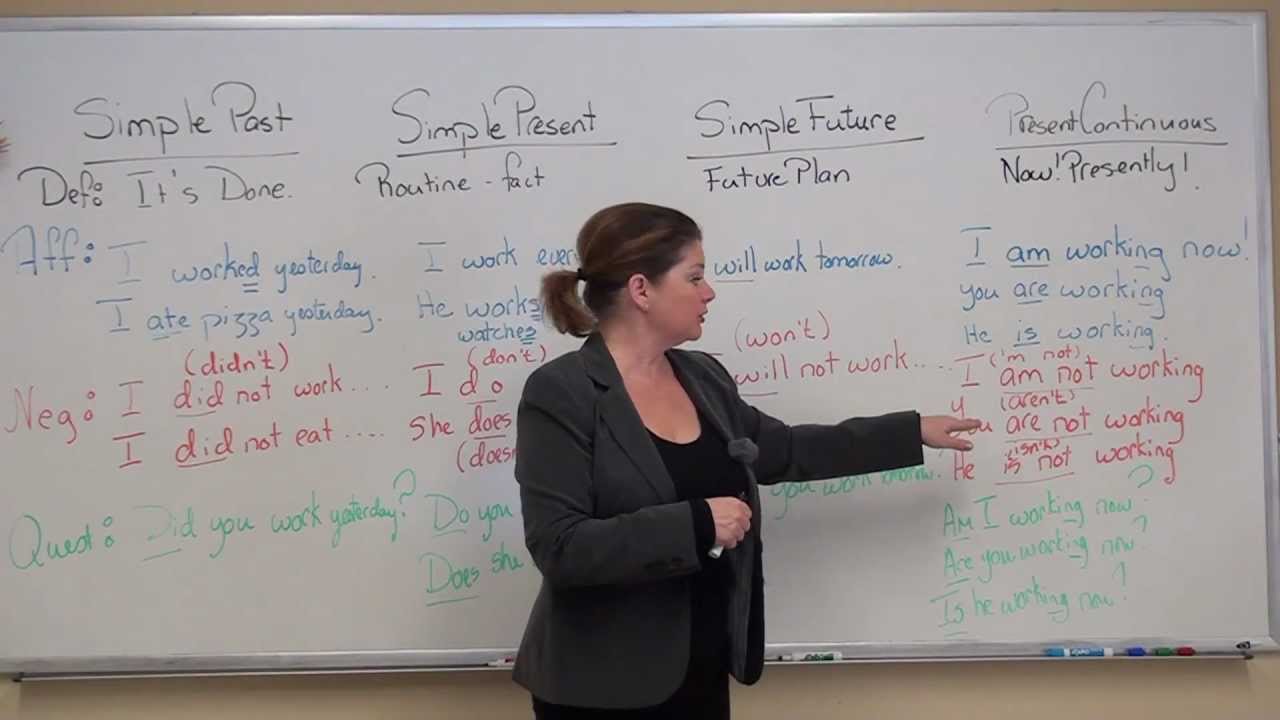 Simple Past
Def: It's Done.
Aff: I worked yesterday.
I ate pizza yesterday.
(didn't)
Neg: I did not work....
I did not eat ....
Quest: Did you work yesterday?
Simple Present
Routine - fact
I work
He works
watches
(don't)
I do
She does
Do you
Does she
Simple Future
Future Plan
will work tomorrow.
(won't)
will not work.....
you work
Present Continuous
Now! Presently!
I am working now!
you are working
He is working.
('m not)
I am not working
(aren't)
You are not working
(isn't)
He is not working
Am I working now?
Are you working now?
Is he working now?